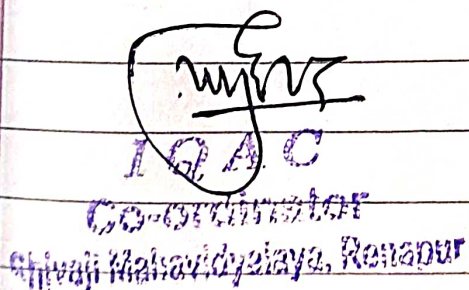 I Q A C
Co-ordinator
Shivaji Mahavidyalaya, Renapur